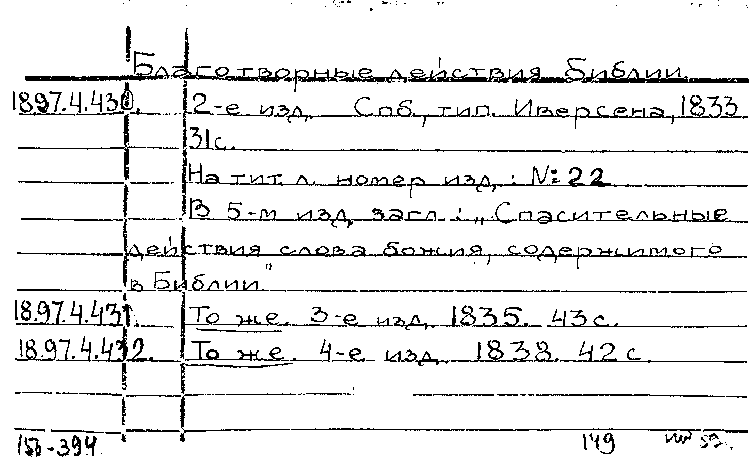 Благотворные действия Библии.
18.97.4.430. 2-е изд. Спб., тип. Иверсена, 1833
31с.
На тит. л. номер изд.: №22
В 5-м изд. загл.: „Спасительные
действия слова божия, содержимого
в Библии"
18.97.4.431. То же. 3-е изд. 1835. 43с.
18.97.4.432. То же. 4-е изд. 1838. 42с.
149